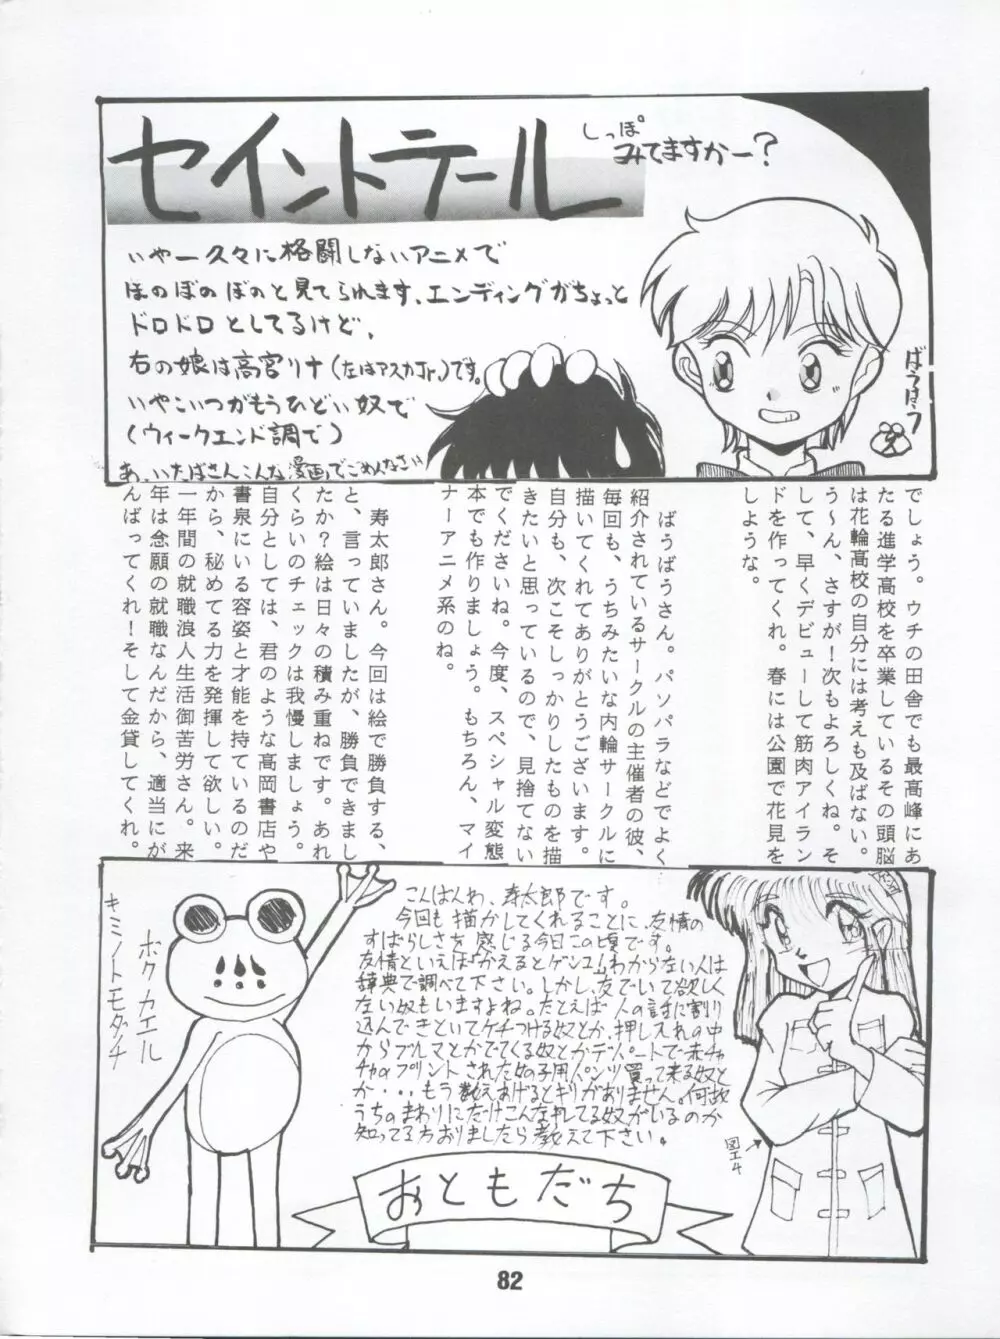 セイントテール
しっぽ
みてますかー?
いやー久々に格闘しないアニメで
ほのぼのぼのと見てられます、エンディングがちょっと
ドロドロとしてるけど、
右の娘は高宮リナ(左はアスカJr.)です。
いやこいつがもうひどい奴で
(ウィークエンド調で)
あ、いたばさんこんな漫画でごめんなさい
ばうばう
でしょう。ウチの田舎でも最高峰にあ
たる進学高校を卒業しているその頭脳
は花輪高校の自分には考えも及ばない。
う〜ん、さすが!次もよろしくね。そ
して、早くデビューして筋肉アイラン
ドを作ってくれ。春には公園で花見を
しような。
ばうばうさん。パソパラなどでよく
紹介されているサークルの主催者の彼、
毎回も、うちみたいな内輪サークルに
描いてくれてありがとうございます。
自分も、次こそしっかりしたものを描
きたいと思っているので、見捨てない
でくださいね。今度、スペシャル変態
本でも作りましょう。もちろん、マイ
ナーアニメ系のね。
寿太郎さん。今回は絵で勝負する、
と、言っていましたが、勝負できまし
たか?絵は日々の積み重ねです。あれ
くらいのチェックは我慢しましょう。
自分としては、君のような高岡書店や
書泉にいる容姿と才能を持ているのだ
から、秘めてる力を発揮して欲しい。
一年間の就職浪人生活御苦労さん。来
年は念願の就職なんだから、適当にが
んばってくれ!そして金貸してくれ。
ボクカエル
キミノトモダッチ
こんばんわ、寿太郎です。
今回も描かしてくれることに、友情の
すばらしさを感じる今日この頃です。
友情といえば「かえるとゲンコ」わからない人は
辞典で調べて下さい。しかし、友でいて欲しく
ない奴もいますよね。たとえば人の話に割り
込んできといてケチつける奴とか、押し入れの中
からブルマとかでてくる奴とかデパートで赤チャ
チャのプリントされた女の子用パンツ買って来る奴と
か・・・もう数えあげるとキリがありません。何故
うちのまわりにだけこんなイレてる奴がいるのか
知ってる方おりましたら教えて下さい。
図工4
おともだち
82